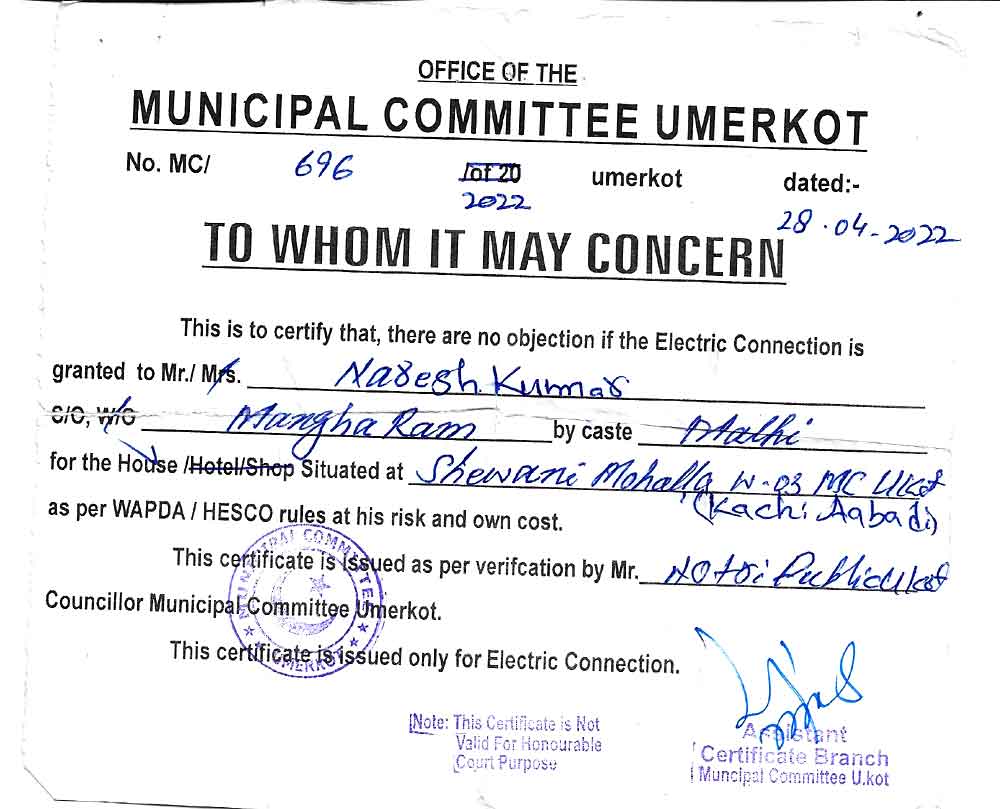 OFFICE OF THE
MUNICIPAL COMMITTEE UMERKOT
No. MC/ 696 /of 20 umerkot dated:-
2022 28.04-2022
TO WHOM IT MAY CONCERN
This is to certify that, there are no objection if the Electric Connection is
granted to Mr./ Mrs. Naresh Kumar
S/O, W/O Mangha Ram by caste Malhi
for the House /Hotel/Shop Situated at Shewani Mohalla W-03 MC UKot
as per WAPDA / HESCO rules at his risk and own cost. (Kachi Aabadi)
This certificate is issued as per verifcation by Mr. Notri Public Ukot
Councillor Municipal Committee Umerkot.
This certificate is issued only for Electric Connection.
MUNICIPAL COMMITTEE
UMERKOT
Note: This Certificate is Not
Valid For Honourable
Court Purpose
Assistant
Certificate Branch
Muncipal Committee U.kot